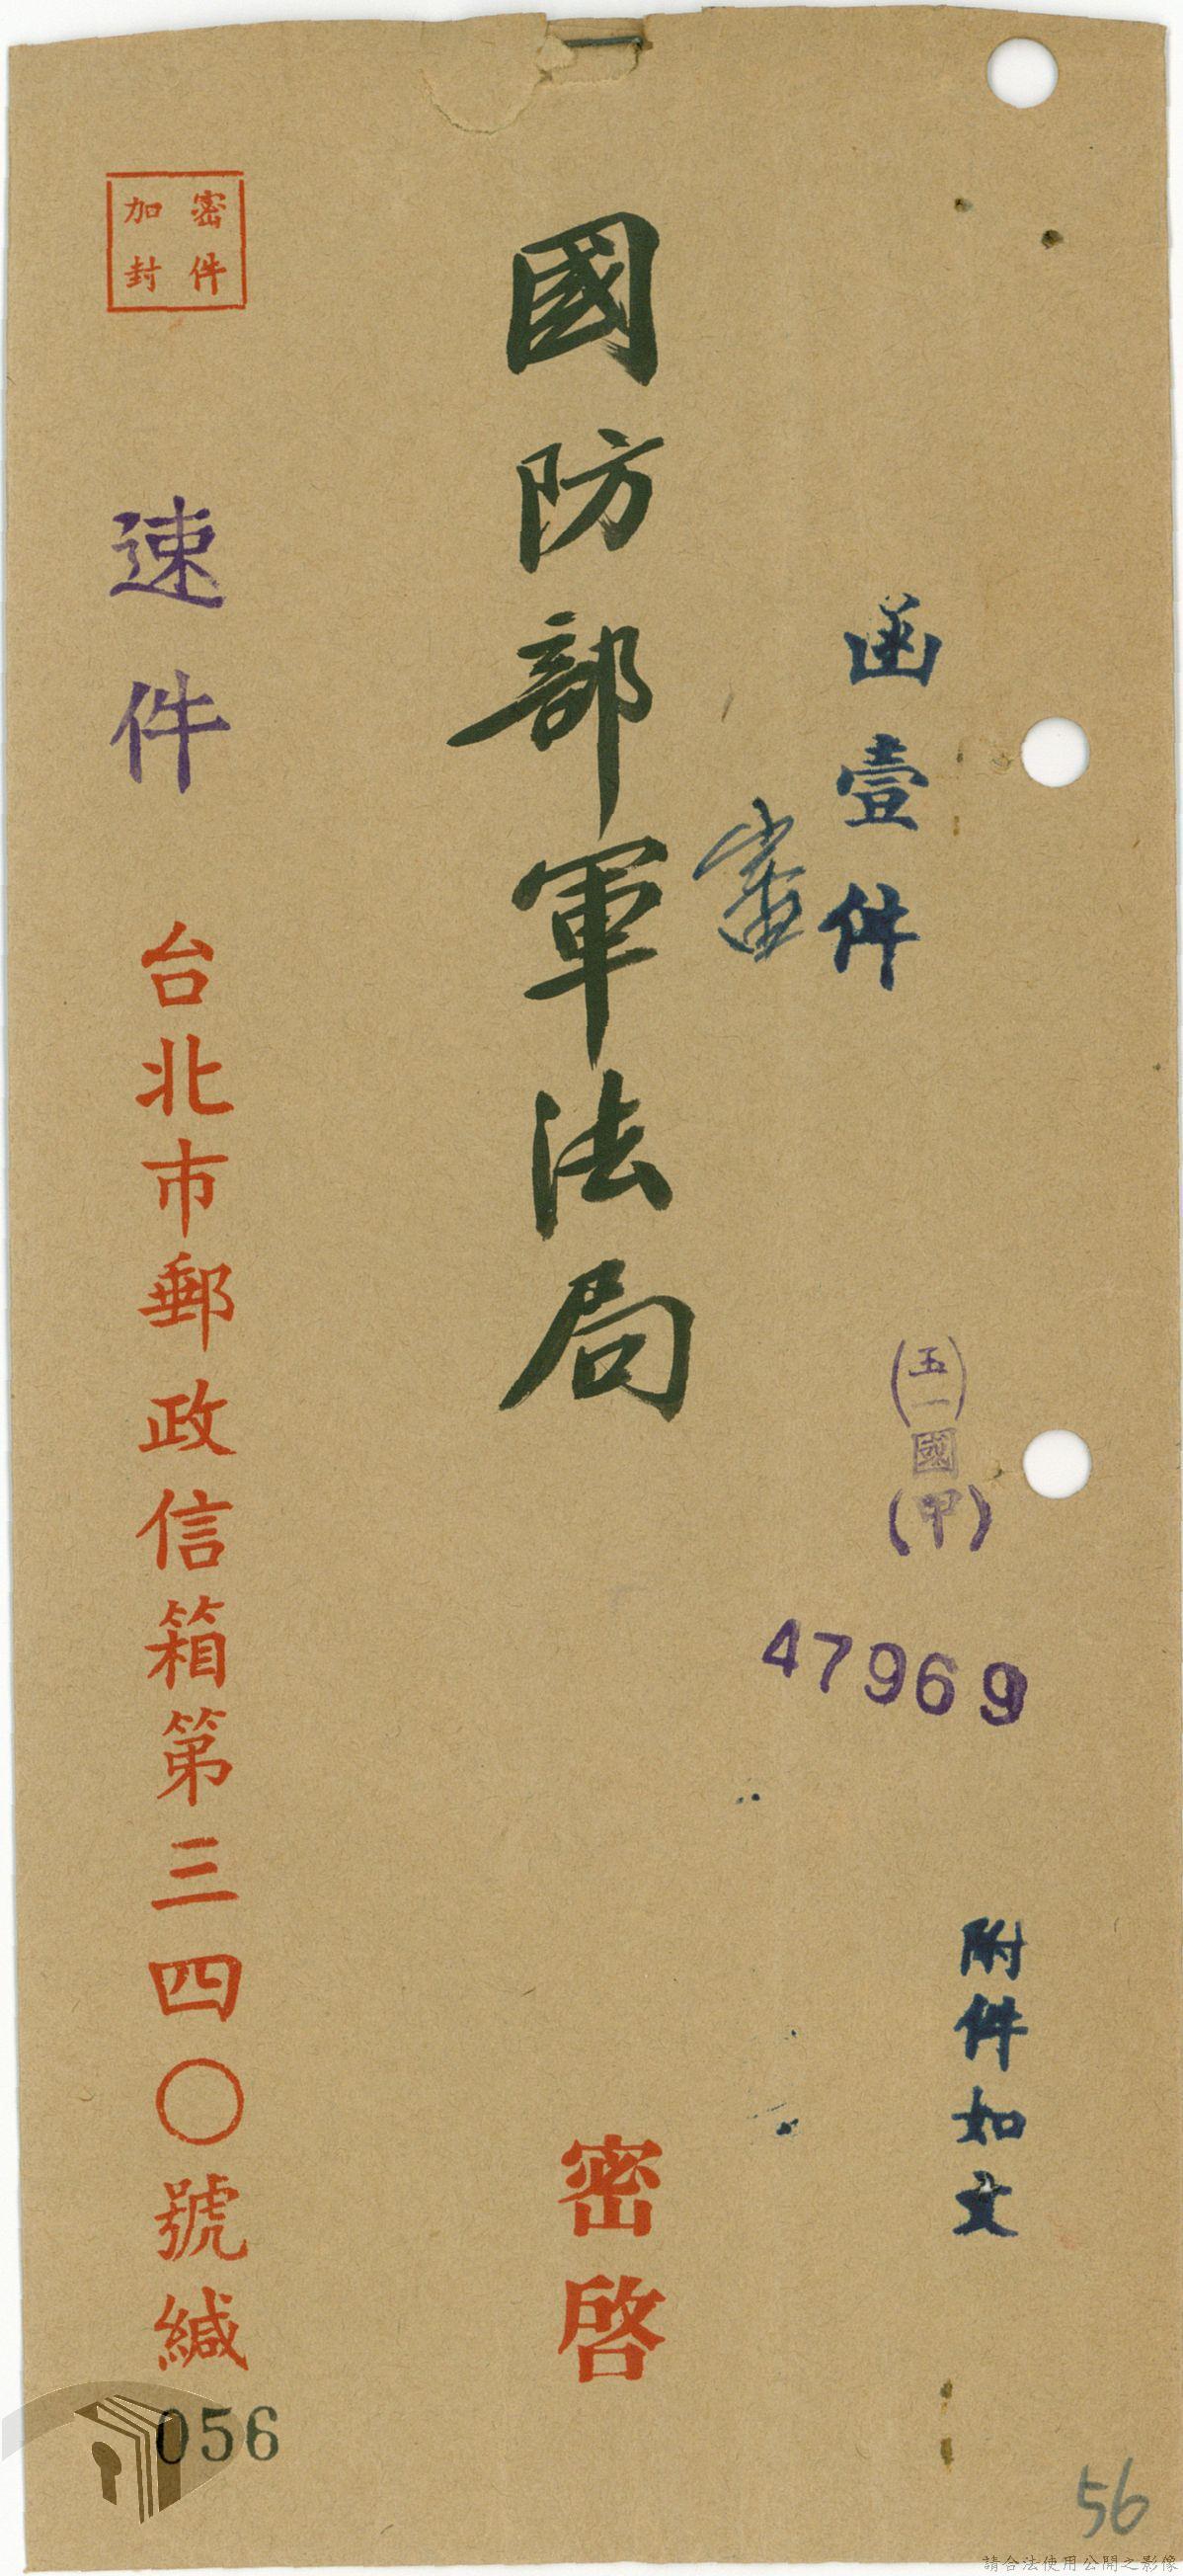 附件如文
(五一國(甲)
47969
函壹件
審
國防部軍法局
密啓
密件
加封
速件
台北市郵政信箱第三四〇號緘
056
56
請合法使用公開之影像